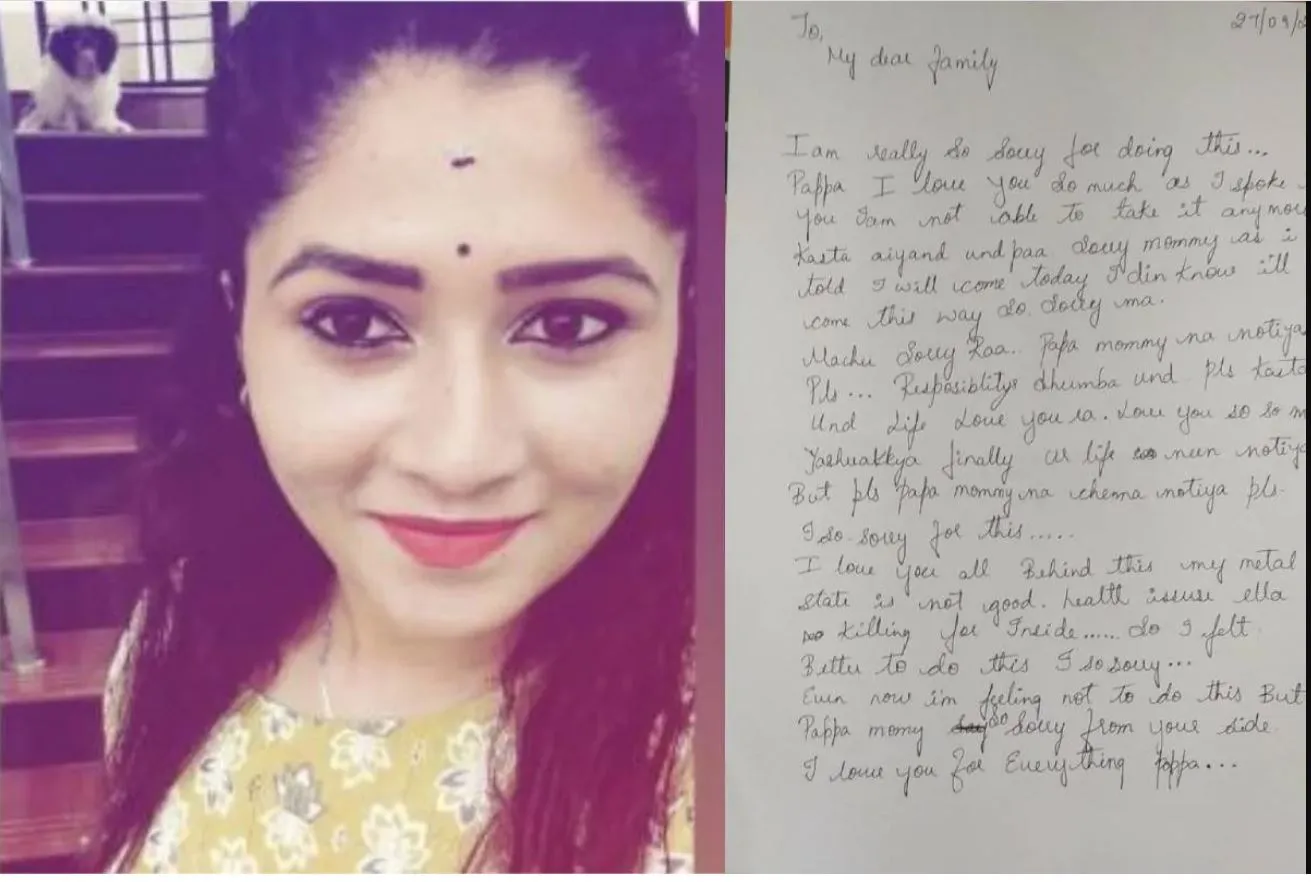 27/09/
To,
My dear family
I am really so sorry for doing this...
Pappa I love you so much as I spoke
you Iam not able to take it anymor
Kasta aiyand und paa. Sorry mommy as i
told I will come today I din know ill
come this way so. Sorry ma.
Machu Sorry Raa.. Papa mommy na notiya
Pls... Resposiblitys dhumba und. pls kasta
Und Life Love you ra. Love you so so m
Yashuakkya finally ur life neen notiya
But pls papa mommy na chenna notiya pls.
I so. sorry for this.....
I love you all Behind this my metal
state is not good. health issuse ella
killing for Inside...... So I felt
Better to do this I so sorry...
Even now i'm feeling not to do this But
Pappa momy so Sorry from your side.
I love you for Everything pappa...